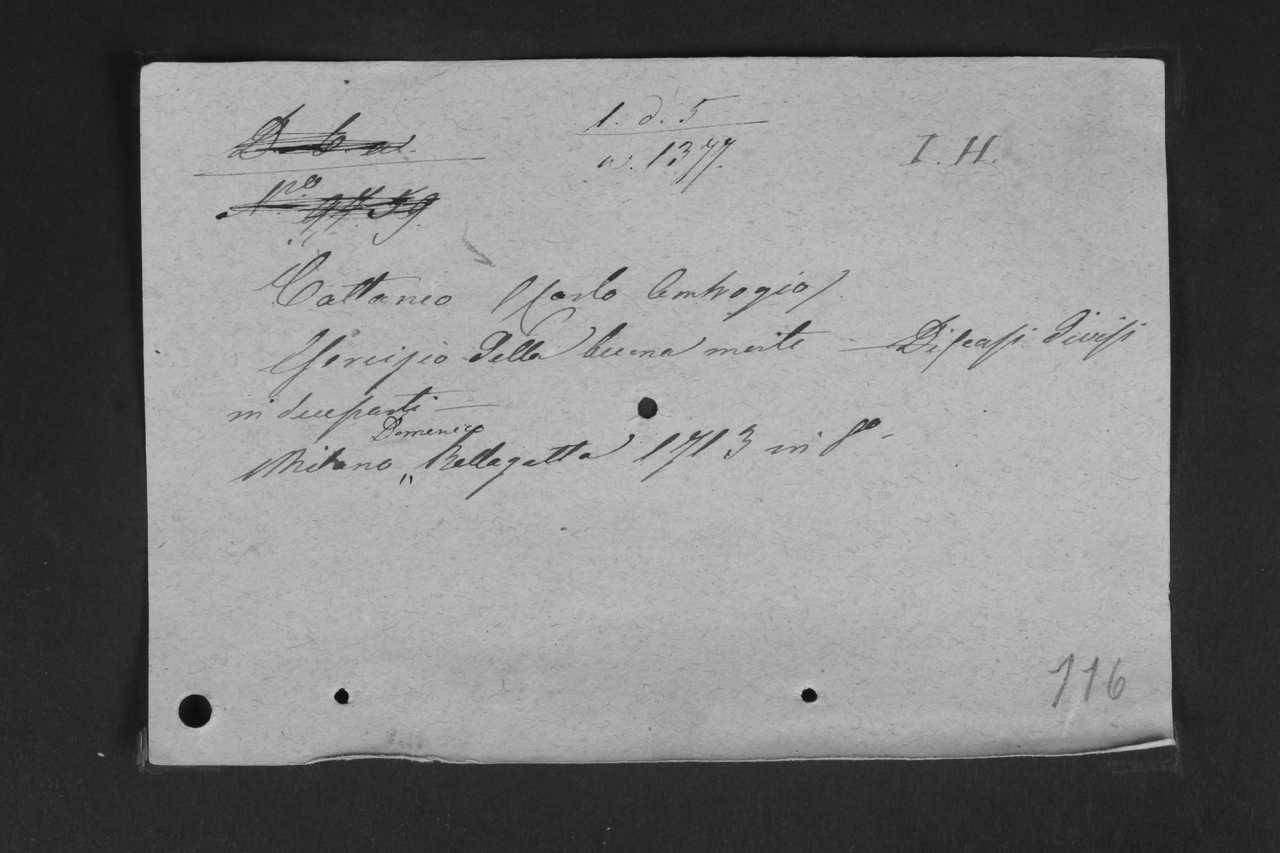 D. b. a.
N.ro 9739.
1. d. 5
a. 1377.
I. H.
Cattaneo (Carlo Ambrogio)
Esercizio della buona morte — Discorsi divisi
in due parti —
Domenico
Milano „ Bellagatta 1713 in 8º
116